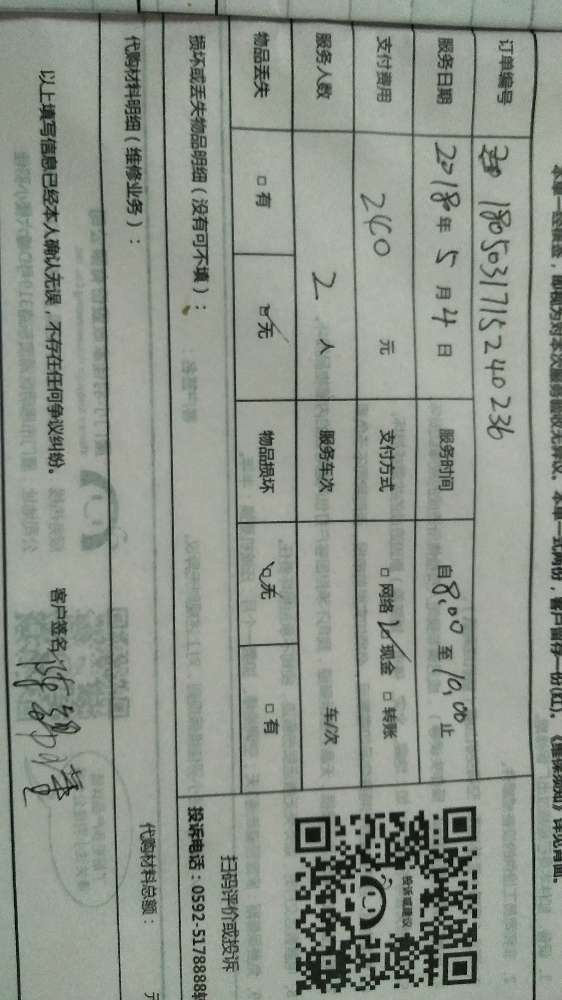 本单一经签签，即视为对本次服务验收无异议。本单一式两份，客户留存一份(红)。《维保须知》详见背面。
订单编号 1805031715240236
服务日期 2018年5月4日 服务时间 自8:00至10:00止
支付费用 240元 支付方式 □网络 ☑现金 □转账
服务人数 2人 服务车次 车/次
物品丢失 □有 ☑无 物品损坏 ☑无 □有
损坏或丢失物品明细（没有可不填）：
投诉建议
扫码评价或投诉
投诉电话：0592-5178888转
代购材料明细（维修业务）：
代购材料总额： 元
以上填写信息已经本人确认无误，不存在任何争议纠纷。 客户签名